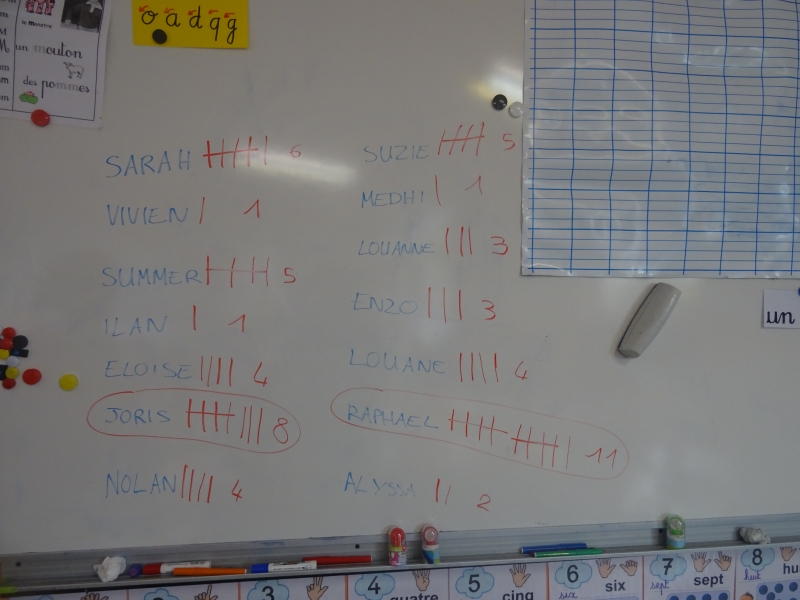 le monstre
un mouton
des pommes
o a d q g
SARAH 6
VIVIEN 1
SUMMER 5
ILAN 1
ELOISE 4
JORIS 8
NOLAN 4
SUZIE 5
MEDHI 1
LOUANNE 3
ENZO 3
LOUANE 4
RAPHAEL 11
ALYSSA 2
un
3
4 quatre
5 cinq
6 six six
7 sept sept
8 huit hu